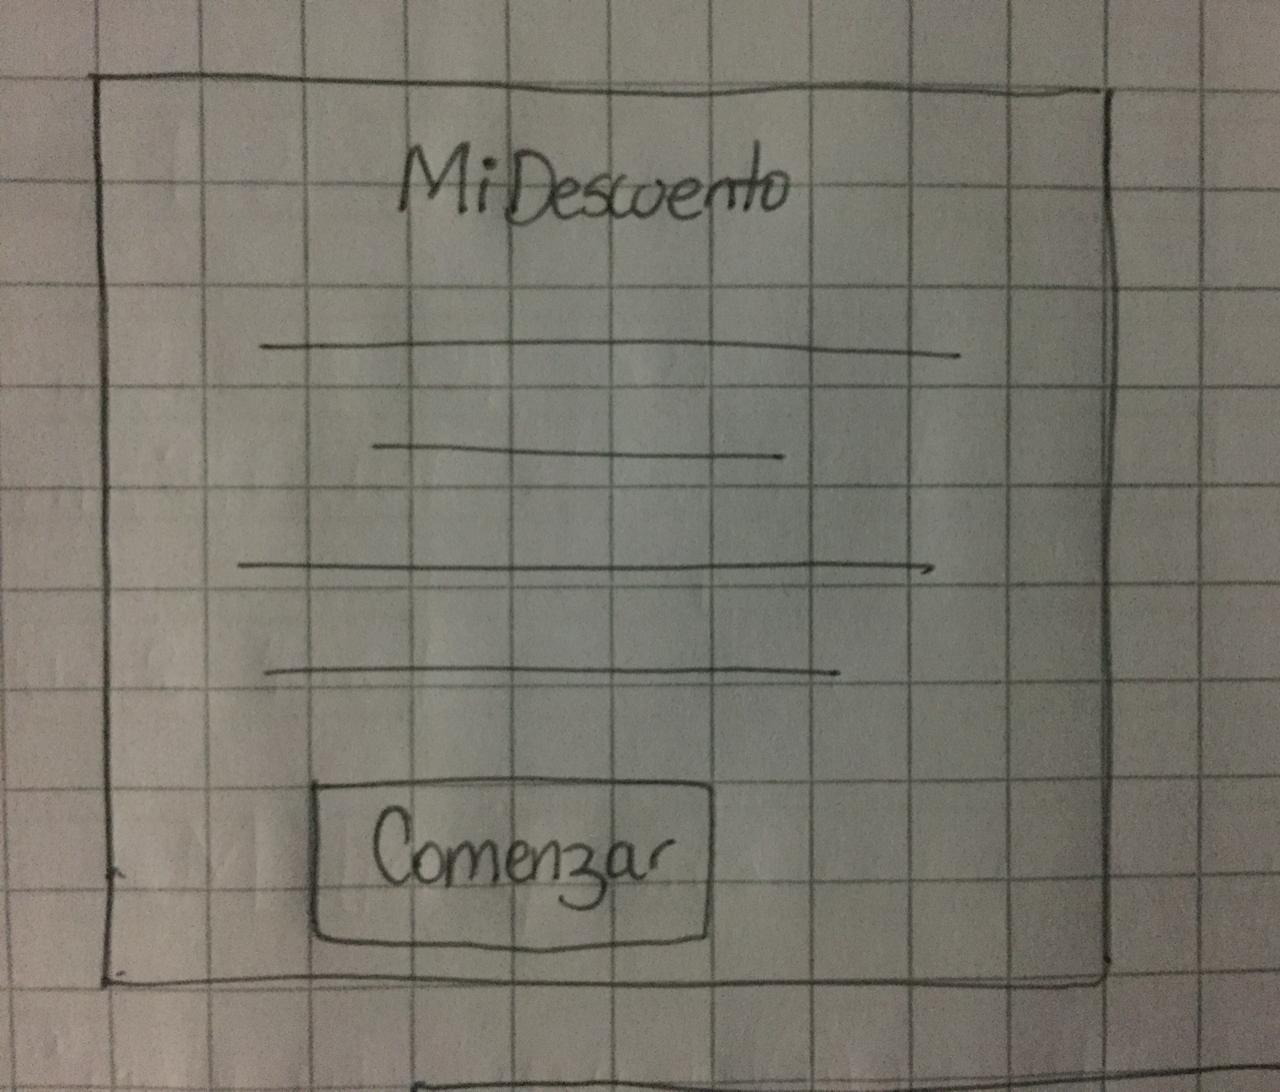 MiDescuento
Comenzar